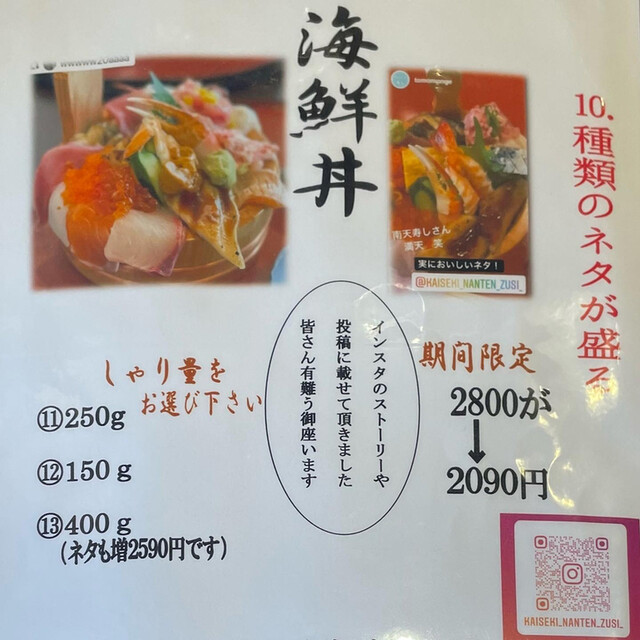 海鮮丼
10.種類のネタが盛る
tomomgongo
南天寿しさん
満天 笑
実においしいネタ！
@KAISEKI_NANTEN_ZUSI_
しゃり量を
お選び下さい
⑪250g
⑫150g
⑬400g
(ネタも増2590円です)
インスタのストーリーや
投稿に載せて頂きました
皆さん有難う御座います
期間限定
2800が
↓
2090円
KAISEKI_NANTEN_ZUSI_